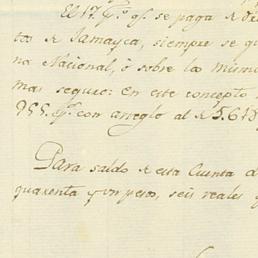 El 17. p% q.e se paga de De
tos de Jamayca, siempre se qu
na Nacional, ó sobre la misma
mas seguro: En este concepto
955. p.s con arreglo al
Para saldo de esta Cuenta d
quarenta y un pesos, seis reales y